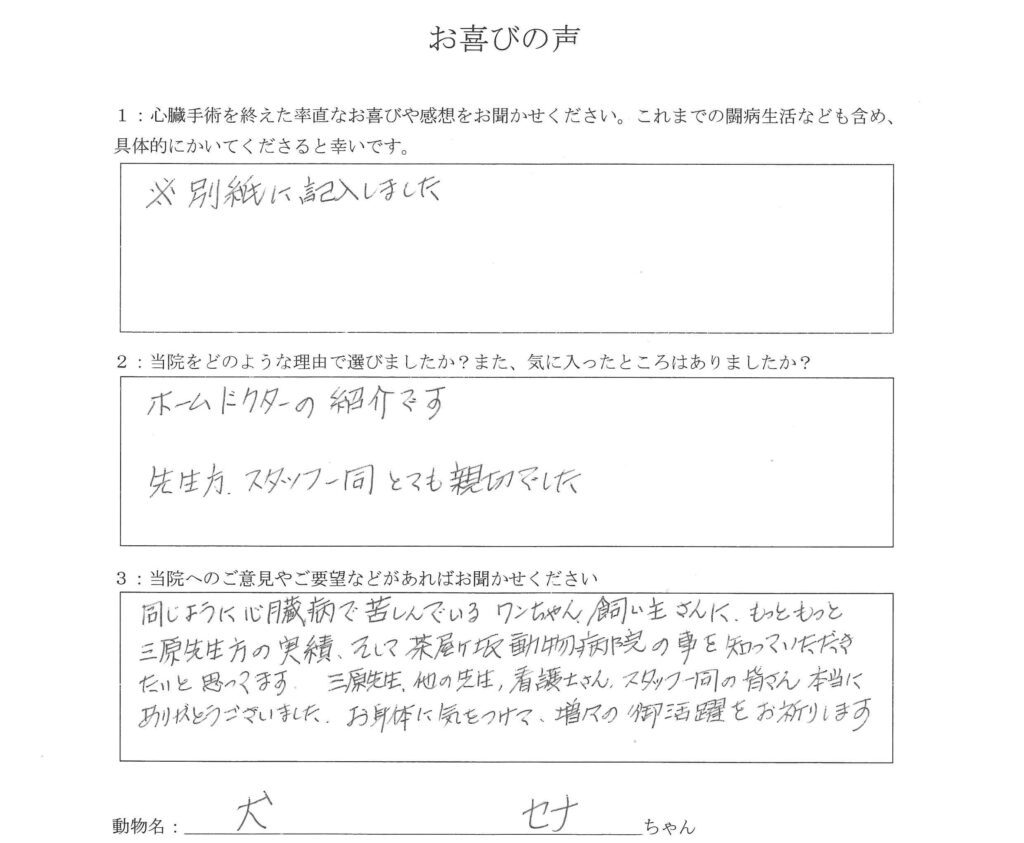 お喜びの声
1：心臓手術を終えた率直なお喜びや感想をお聞かせください。これまでの闘病生活なども含め、
具体的にかいてくださると幸いです。
※ 別紙に記入しました
2：当院をどのような理由で選びましたか？また、気に入ったところはありましたか？
ホームドクターの紹介です
先生方、スタッフ一同とても親切でした
3：当院へのご意見やご要望などがあればお聞かせください
同じように心臓病で苦しんでいるワンちゃん、飼い主さんに、もっともっと
三原先生方の実績、そして茶屋ヶ坂動物病院の事を知っていただき
たいと思ってます。 三原先生、他の先生、看護士さん、スタッフ一同の皆さん本当に
ありがとうございました。お身体に気をつけて、増々の御活躍をお祈りします
動物名：犬 セナ ちゃん